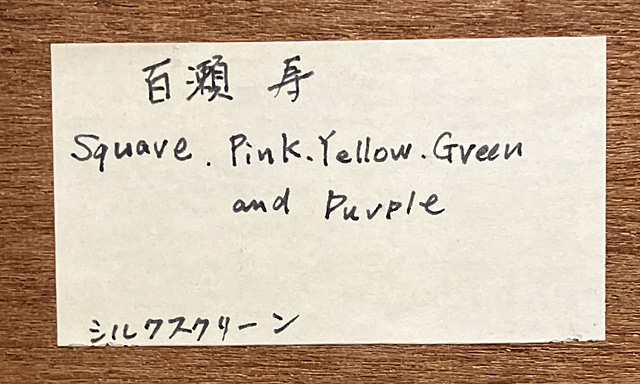 百瀬 寿
Square. Pink. Yellow. Green
and Purple
シルクスクリーン